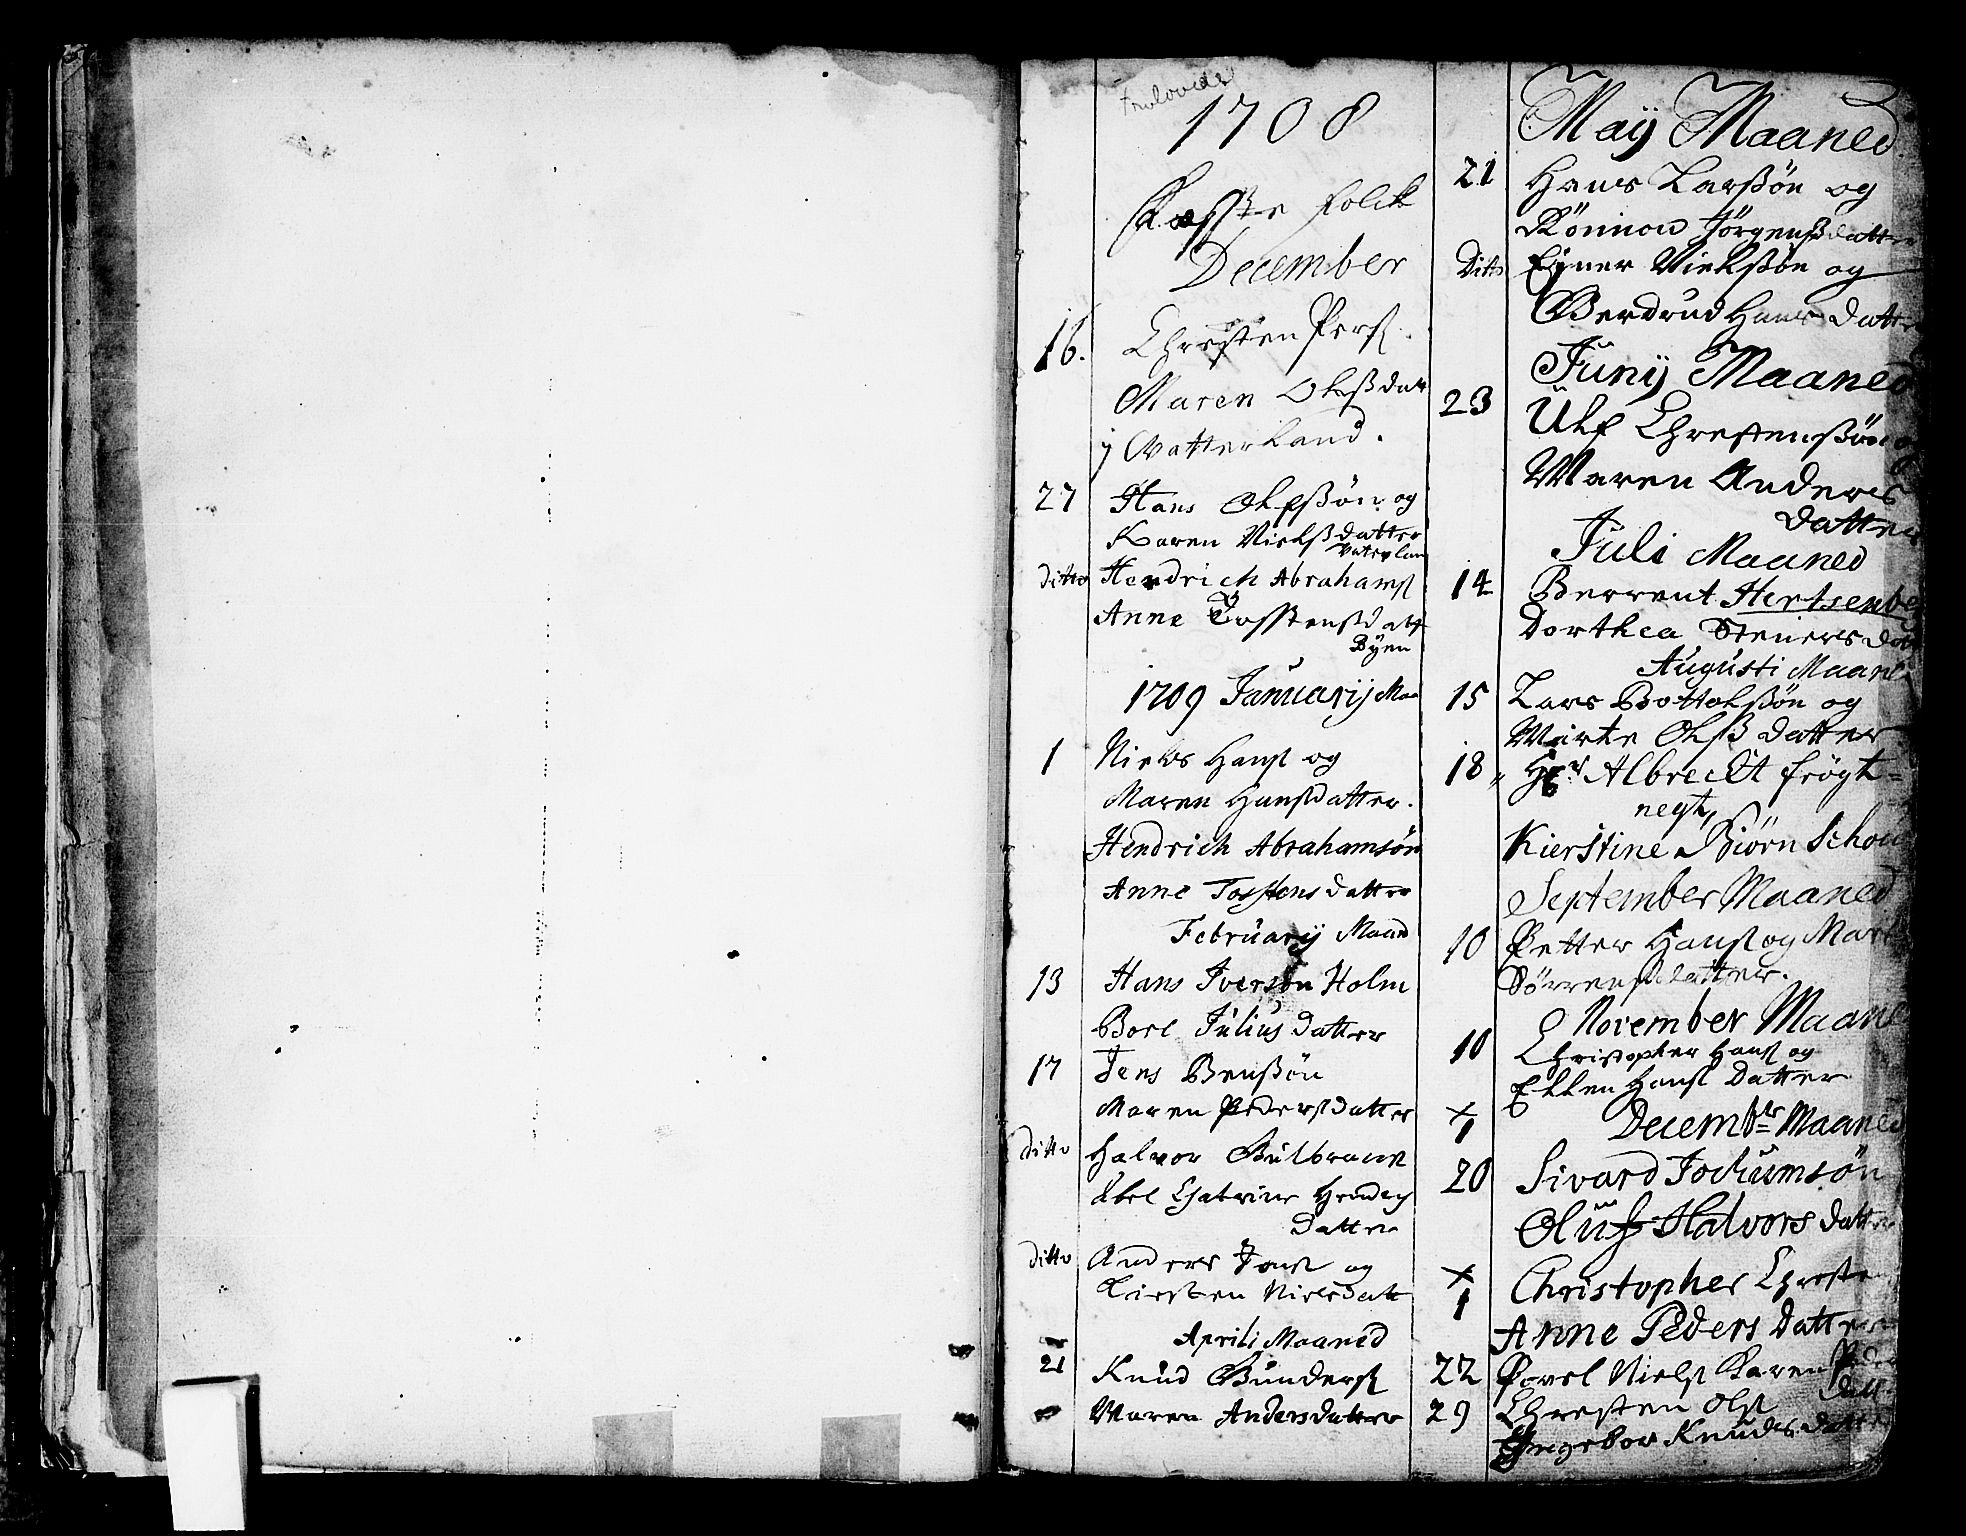 Trulovede
1708
Fæste folck
December
16. Christen Pers.
Maren Olsßdatt
j Vatterland.
27 Hans Olsßøn og
Karen Nielsßdatter
Vaterlan
ditto Hendrich Abrahams
Anne Tosstensdatt
Byen
1709 Januarij Maa
1 Niels Hans og
Maren Hansdatter.
Hendrich Abrahamsøn
Anne Tosstens datter
Februarij Maand
13 Hans Iversøn Holm
Borl Julius datter
17 Jens Benßøn
Maren Pedersdatter
ditto Halvor Gulbrans
Abel Chatrine Hendrs
Datter
ditto Anders Jons og
Kirsten Nielsdatt
Aprili Maaned
21 Knud Gunders
Maren Andersdatter
Maÿ Maaned
21 Hans Larßøn og
Rönnou Jörgensdatter
Ditto Ejner Nielsßøn og
Berdrud Hans datter
Junÿ Maaned
23 Ulf Christenßøn og
Maren Anders
datter
Juli Maaned
14 Berrent Hertsenbe
Dorthea Steners dat
Augusti Maane
15 Lars Bottolßøn og
Marte Olsß datter
18 Hr Albrecht frögt=
negt,
Kierstine Biørn Schou
September Maaned
10 Petter Hans og Mart
Sörrensdatter.
November Maane
10 Christopher Hans og
Ellen Hans Datter
+ Decembr Maaned
1
20 Sivard Jochumsøn
Oluf Halvors datter
+ Christopher Christe
1
Anne Peders Datter
22 Povel Niels Karen Peder
Datt
29 Christen Ols
Engebor Knuds datter